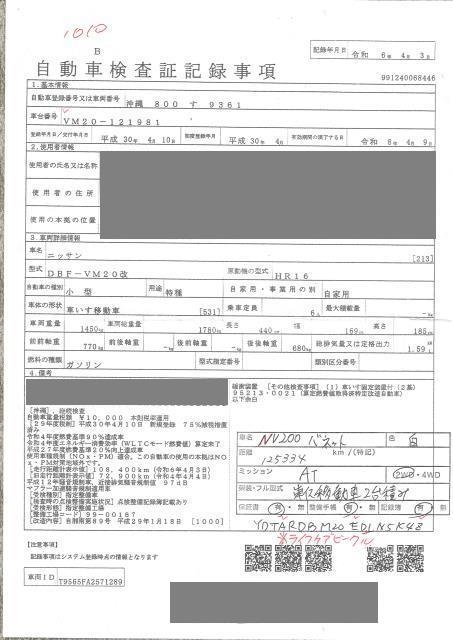 1010
B
記録年月日 令和 6年 4月 3日
自動車検査証記録事項
991240068446
1.基本情報
自動車登録番号又は車両番号 沖縄 800 す 9361
車台番号 VM20-121981
登録年月日/交付年月日 平成 30年 4月 10日 初度登録年月 平成 30年 4月 有効期間の満了する日 令和 8年 4月 9日
2.使用者情報
使用者の氏名又は名称
使用者の住所
使用の本拠の位置
3.車両詳細情報
車名 ニッサン [213]
型式 DBF-VM20改 原動機の型式 HR16
自動車の種別 小型 用途 特種 自家用・事業用の別 自家用
車体の形状 車いす移動車 [531] 乗車定員 6人 最大積載量 -kg
車両重量 1450kg 車両総重量 1780kg 長さ 440cm 幅 169cm 高さ 185cm
前前軸重 770kg 前後軸重 -kg 後前軸重 -kg 後後軸重 680kg 総排気量又は定格出力 1.59L
燃料の種類 ガソリン 型式指定番号 類別区分番号
4.備考
[沖縄], 継続検査
自動車重量税額 ¥10,000 本則税率適用
[29年度税制]平成30年4月10日 新規登録 75%減税措置済み
令和4年度燃費基準90%達成車
令和4年度エネルギー消費効率(WLTCモード燃費値)算定未了
平成27年度燃費基準20%向上達成車
使用車種規制(NOx・PM)適合, この自動車の使用の本拠はNOx・PM対策地域外です。
[走行距離計表示値]108,400km(令和6年4月3日)
[旧走行距離計表示値]72,900km(令和4年4月4日)
平成12年騒音規制車, 近接排気騒音規制値 97dB
マフラー加速騒音規制適用車
[受検種別]指定整備車
[検査時の点検整備実施状況]点検整備記録簿記載あり
[受検形態]指定整備工場
[整備工場コード]99-00167
[改造内容]自制指第89号 平成29年1月18日 [1000]
緩衝装置 [その他検査事項] (1)車いす固定装置付(2基)
95213-0021(算定燃費値取得済特定改造自動車)
以下余白
車名 NV200 バネット 色 白
距離 125334 km/(特記)
ミッション AT 2WD・4WD
架装・フル型式 車イス移動車2台積み
保証書 有・無 整備手帳 有・無 記録簿 有・無
YDTARDBM20 EDLN5K48
※ライフケアビークル
[注意事項]
記録事項はシステム登録時点の情報となります
車両ID T9565FA2571289